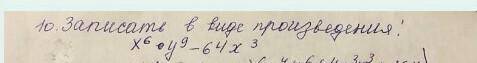 10. Записать в виде произведения!
x⁶•y⁹-64x³